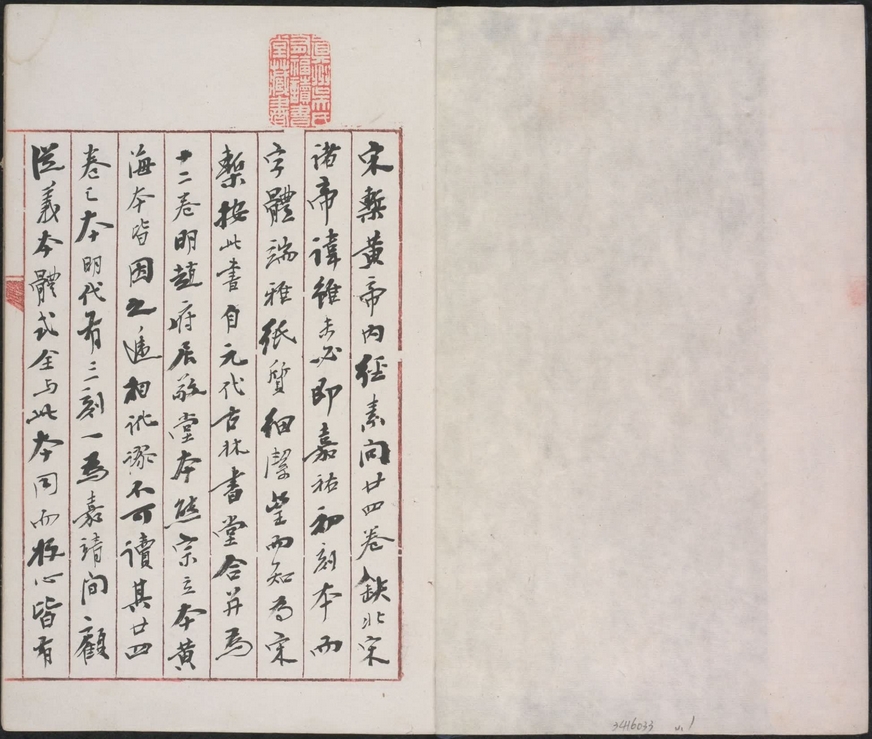 宋槧黃帝內經素問廿四卷缺北宋
諸帝諱雖未必即嘉祐初刻本而
字體端雅紙質細潔望而知為宋
槧按此書自元代古林書堂合并為
十二卷明趙府居敬堂本熊宗立本黃
海本皆因之遞相訛謬不可讀其廿四
卷之本明代有三刻一為嘉靖間顧
從義本體式全与此本同而板心皆有
真州吳氏
有福讀書
堂藏書
3416033 v.1